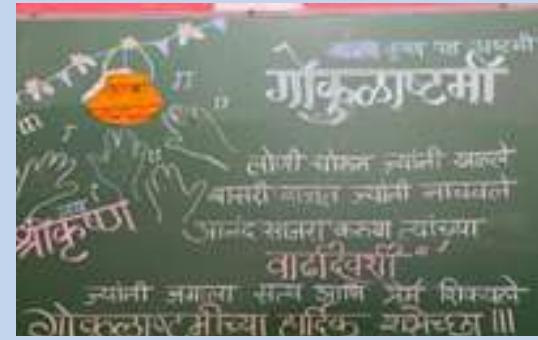 श्रावण कृष्ण पक्ष अष्टमी
गोकुळाष्टमी
लोणी चोरून ज्यांनी खाल्ले
बासरी वाजवून ज्यांनी नाचवले
आनंद साजरा करूया त्यांच्या
वाढदिवशी
ज्यांनी जगाला सत्य आणि प्रेम शिकवले
गोकुळाष्टमीच्या हार्दिक शुभेच्छा !!!
श्रीकृष्ण